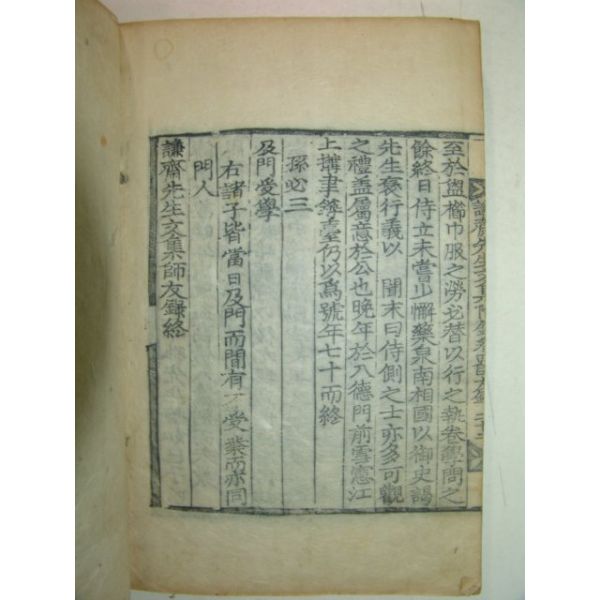 謙齋先生文集附錄 師友錄 二十二
至於盥櫛巾服之勞必替以行之執卷學問之
餘終日侍立未嘗少懈藥泉南相國以御史謁
先生褒行義以 聞末曰侍側之士亦多可觀
之禮盖屬意於公也晚年於入德門前雪窓江
上搆聿錚臺仍以爲號年七十而終
孫必三
及門愛學
右諸子皆當日及門而間有 受業而亦同
門人
謙齋先生文集師友錄終